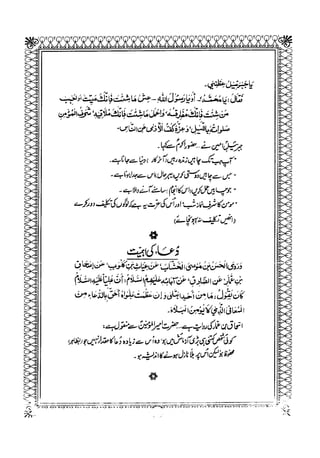 یا جبرئیل عظنی.
تعالیٰ: یا محمد! أو یا رسول الله - عش ما شئت فإنك میت وأحبب
من شئت فإنك مفارقه، واعمل ما شئت فإنك ملاقیه، شرف المؤمن
صلوته باللیل، وعزه كف الأذى عن الناس.
جبرئیل امین نے.. حضور اکرم سے کہا:
- آپ جب تک چاہیں زندہ رہیں، آخرکار دنیا سے جانا ہے۔
- جس سے چاہیں دوستی کریں، بہرحال اس سے جدا ہونا ہے۔
- جو چاہیں عمل کریں، اس کا انجام سامنے آنے والا ہے۔
- مومن کا شرف نماز شب اور اس کی عزت یہ ہے کہ لوگوں کی تکلیف دور کرے
(انھیں تکلیف نہ پہنچائے)
دعاء کی اہمیت
وروى الحسن بن موسى الخشاب عن غیاث بن كلوب، عن إسحاق
بن عمار عن الصادق، عن آبائه علیهم السلام، أن علیا علیه السلام
كان یقول: ما من أحد ابتلی وإن عظمت بلواه أحق بالدعاء، من
المعافى الذی لا یأمن البلاء.
اسحاق بن عمار کی روایت ہے.. حضرت امیر المومنین سے منقول ہے:
کوئی شخص کتنی ہی بڑی آزمائش میں ہو، وہ اس سے زیادہ دعا کا حقدار نہیں جو (بظاہر)
محفوظ ہو لیکن اس پر بلا نازل ہونے کا اندیشہ ہو۔